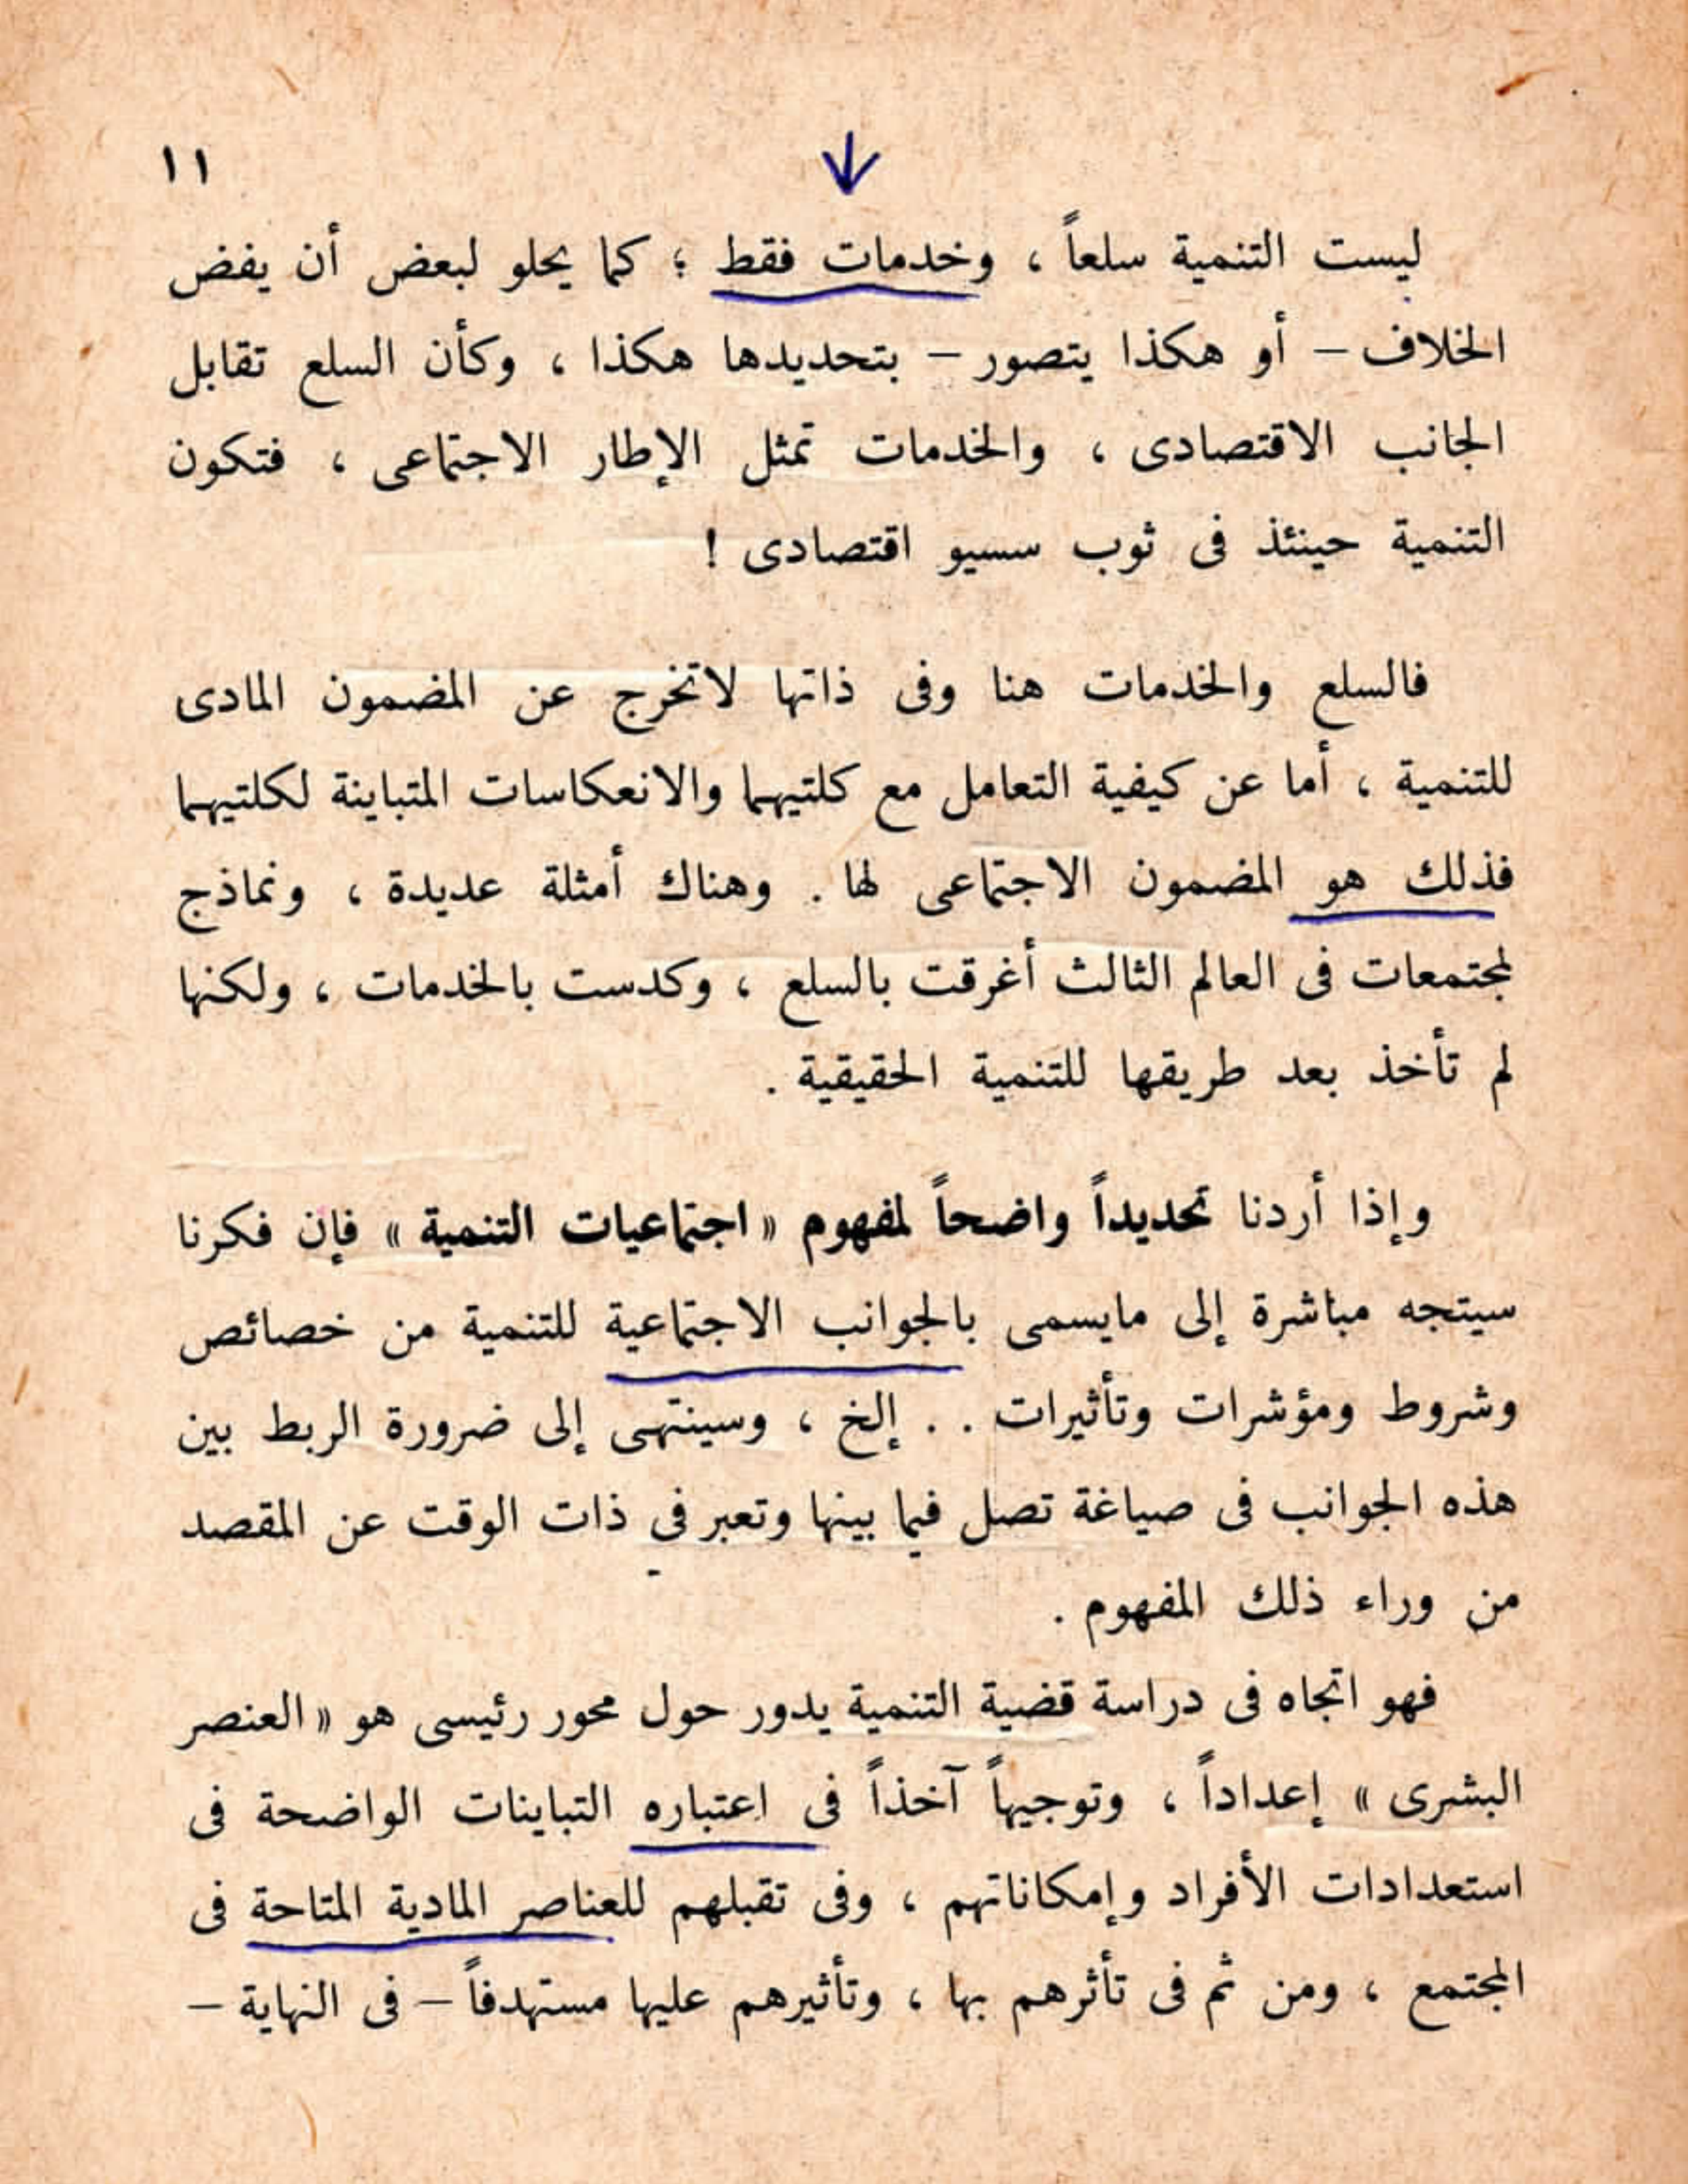 ١١
ليست التنمية سلعاً ، وخدمات فقط ؛ كما يحلو لبعض أن يفض
الخلاف – أو هكذا يتصور – بتحديدها هكذا ، وكأن السلع تقابل
الجانب الاقتصادى ، والخدمات تمثل الإطار الاجتماعى ، فتكون
التنمية حينئذ فى ثوب سسيو اقتصادى !
فالسلع والخدمات هنا وفى ذاتها لاتخرج عن المضمون المادى
للتنمية ، أما عن كيفية التعامل مع كلتيهما والانعكاسات المتباينة لكلتيهما
فذلك هو المضمون الاجتماعى لها . وهناك أمثلة عديدة ، ونماذج
لمجتمعات فى العالم الثالث أغرقت بالسلع ، وكدست بالخدمات ، ولكنها
لم تأخذ بعد طريقها للتنمية الحقيقية .
وإذا أردنا تحديداً واضحاً لمفهوم « اجتماعيات التنمية » فإن فكرنا
سيتجه مباشرة إلى مايسمى بالجوانب الاجتماعية للتنمية من خصائص
وشروط ومؤشرات وتأثيرات . . إلخ ، وسينتهى إلى ضرورة الربط بين
هذه الجوانب فى صياغة تصل فيما بينها وتعبر في ذات الوقت عن المقصد
من وراء ذلك المفهوم .
فهو اتجاه فى دراسة قضية التنمية يدور حول محور رئيسى هو « العنصر
البشرى » إعداداً ، وتوجيهاً آخذاً فى اعتباره التباينات الواضحة فى
استعدادات الأفراد وإمكاناتهم ، وفى تقبلهم للعناصر المادية المتاحة فى
المجتمع ، ومن ثم فى تأثرهم بها ، وتأثيرهم عليها مستهدفاً – فى النهاية –